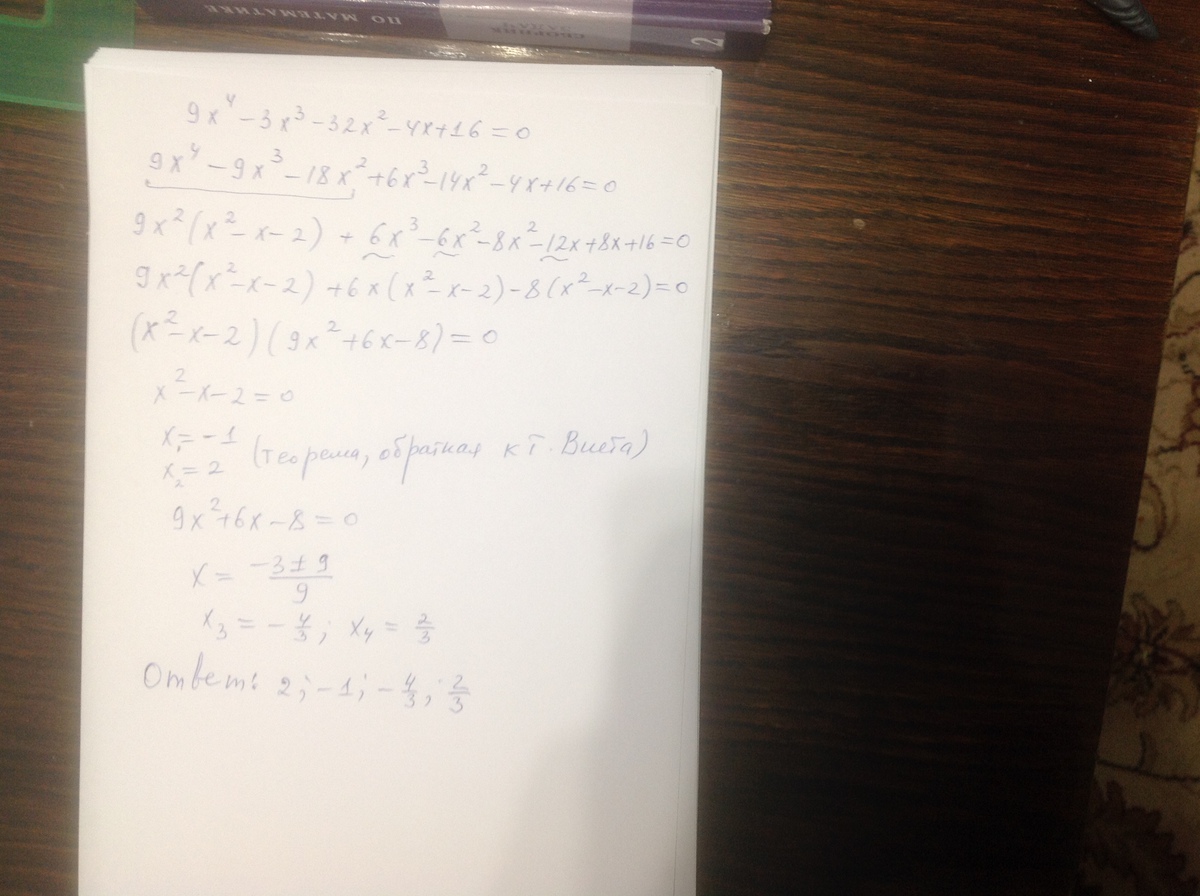 ПО МАТЕМАТИКЕ
СБОРНИК
ЗАДАЧ
2
9x⁴ - 3x³ - 32x² - 4x + 16 = 0
9x⁴ - 9x³ - 18x² + 6x³ - 14x² - 4x + 16 = 0
9x²(x² - x - 2) + 6x³ - 6x² - 8x² - 12x + 8x + 16 = 0
9x²(x² - x - 2) + 6x(x² - x - 2) - 8(x² - x - 2) = 0
(x² - x - 2)(9x² + 6x - 8) = 0
x² - x - 2 = 0
x₁ = -1
x₂ = 2 (теорема, обратная к т. Виета)
9x² + 6x - 8 = 0
x = (-3 ± 9)/9
x₃ = -4/3; x₄ = 2/3
Ответ: 2; -1; -4/3; 2/3